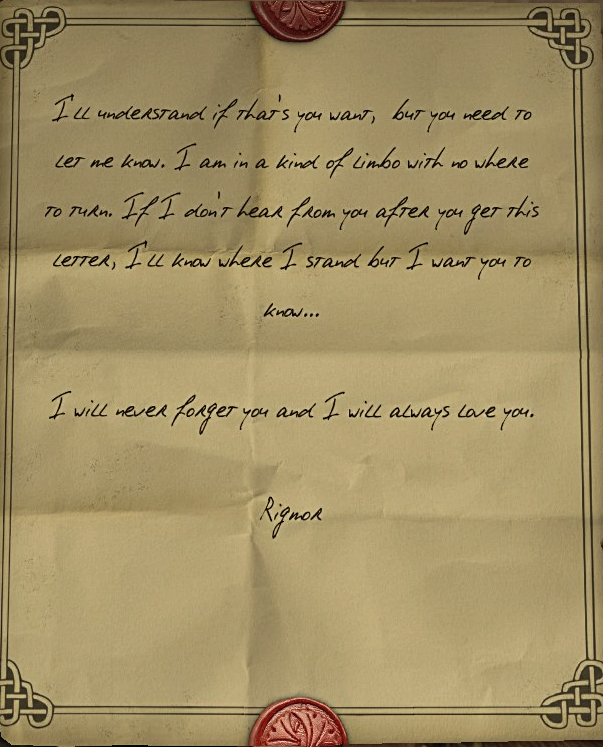 I'll understand if that's you want, but you need to
let me know. I am in a kind of limbo with no where
to turn. If I don't hear from you after you get this
letter, I'll know where I stand but I want you to
know...
I will never forget you and I will always love you.
Rigmor